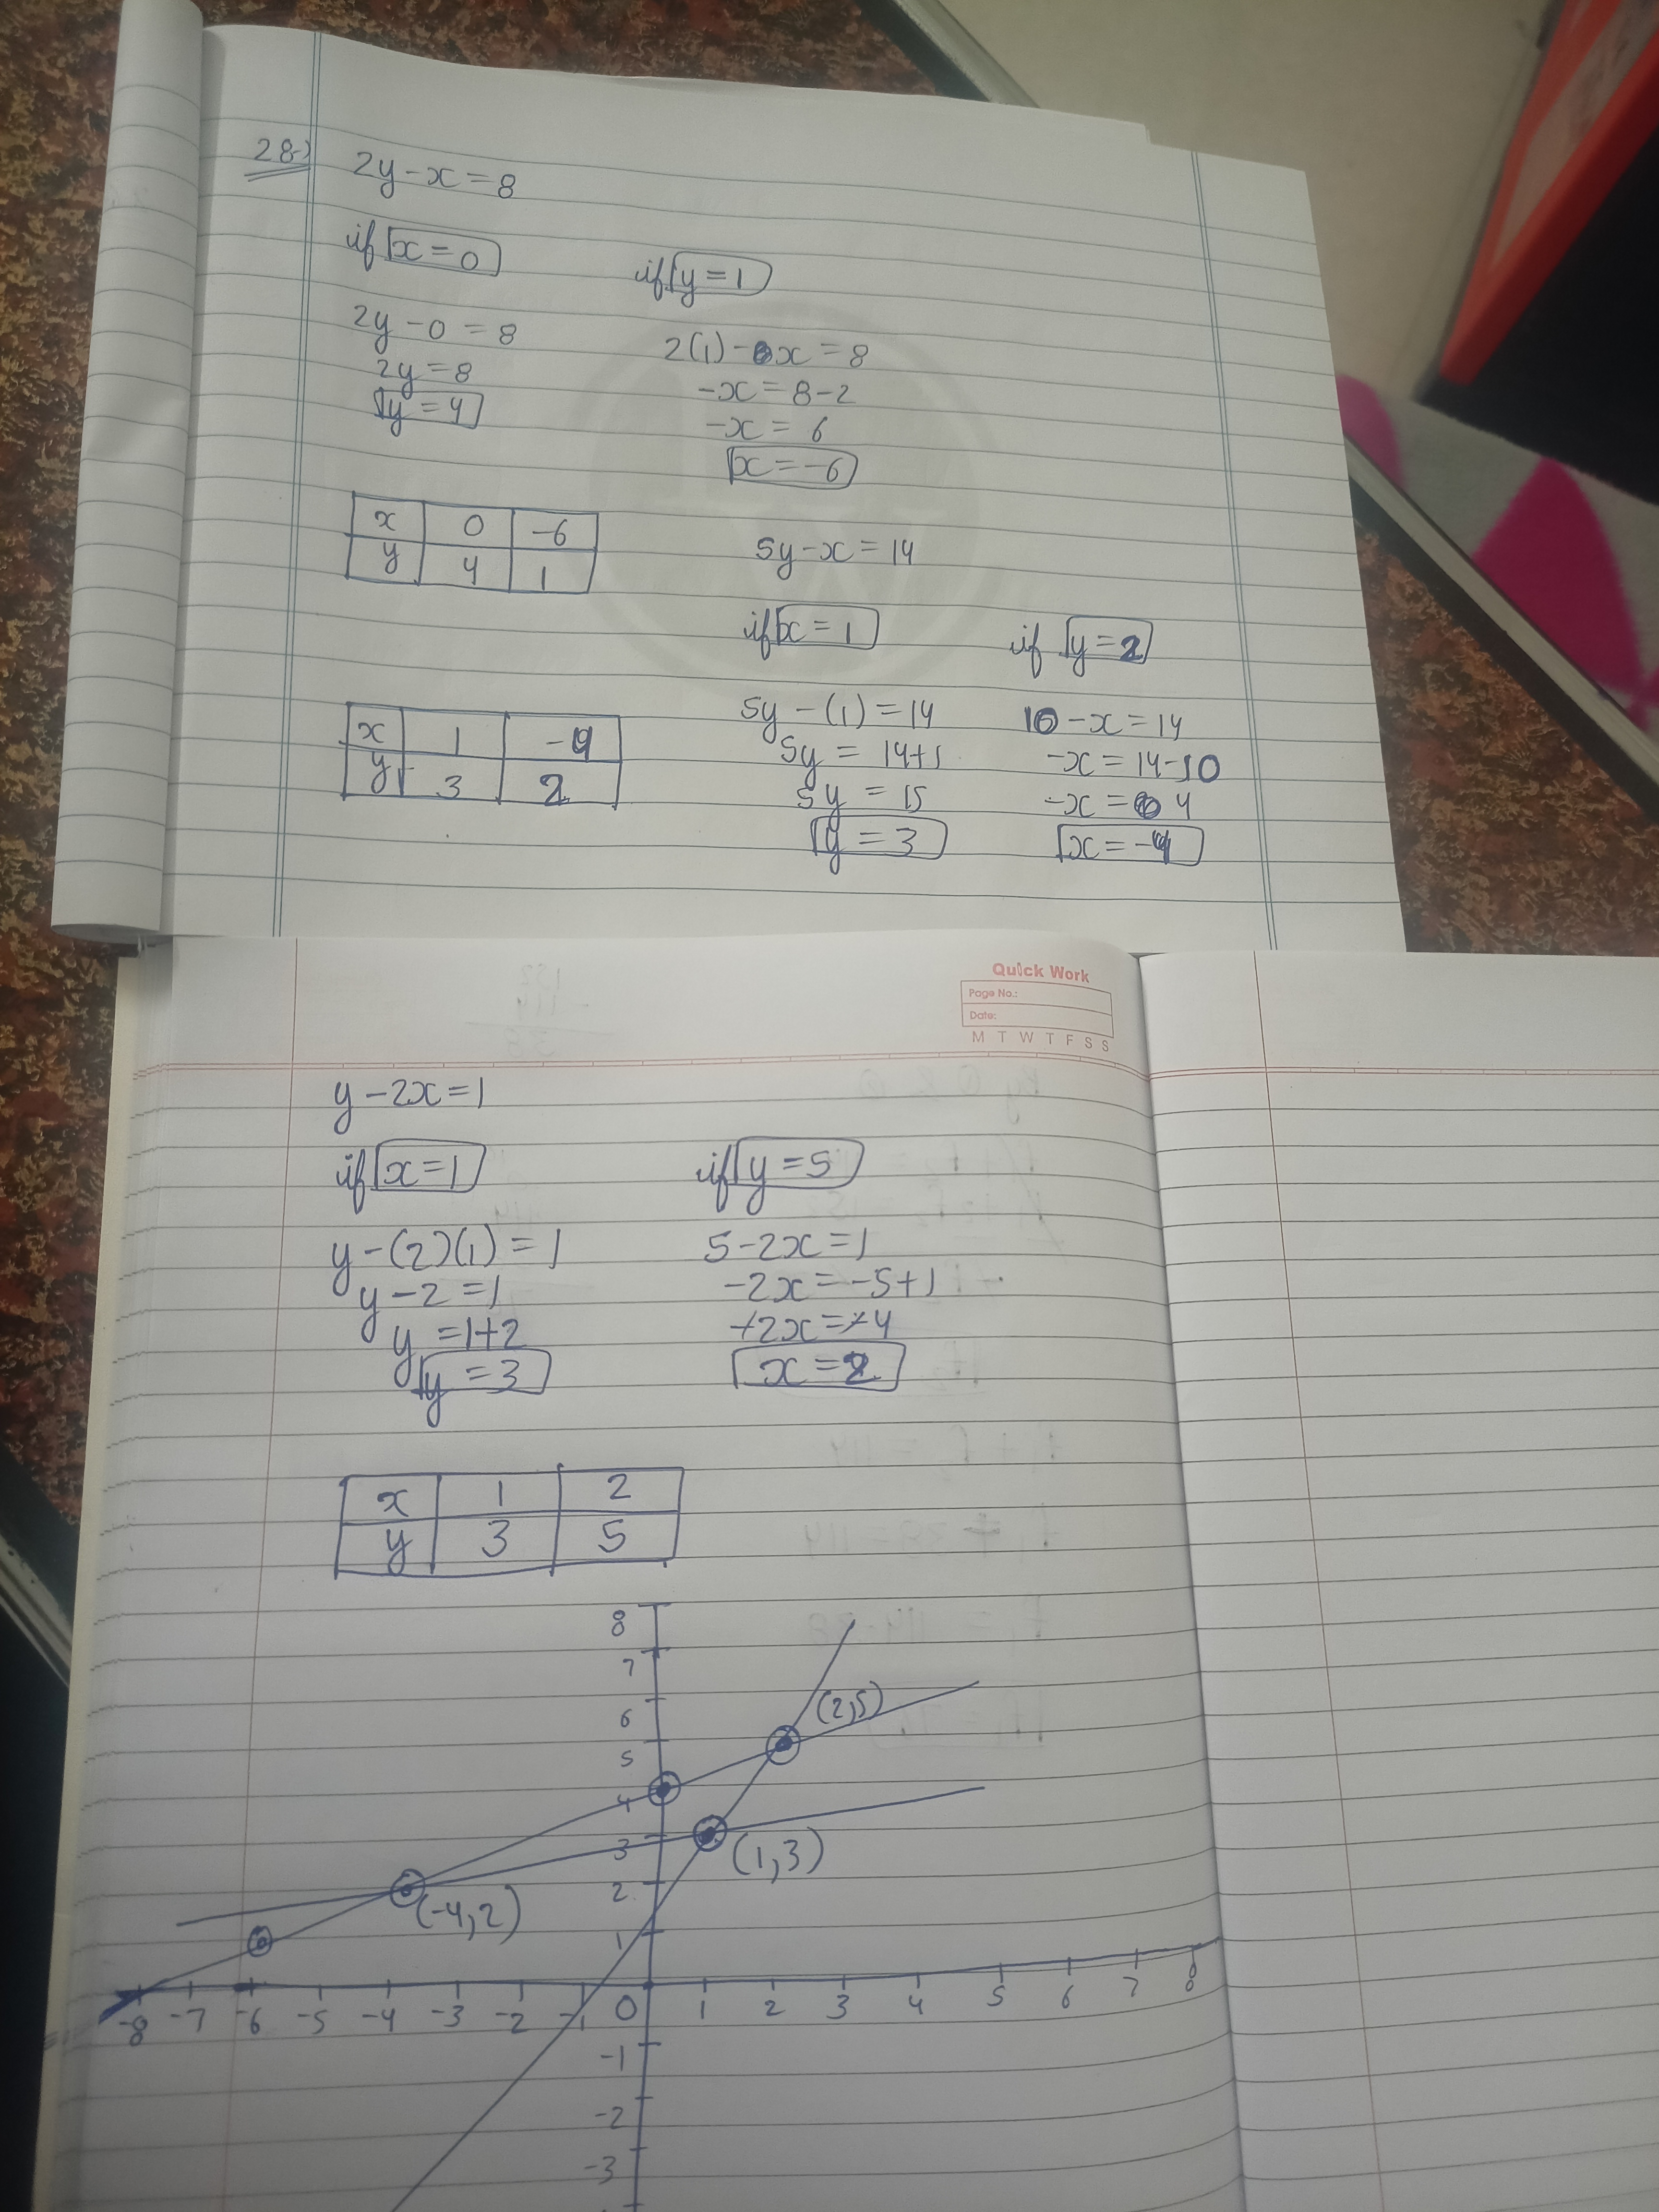 28→
2y-x=8
if x=0
if y=1
2y-0=8
2(1)-x=8
2y=8
-x=8-2
y=4
-x=6
x=-6
x 0 -6
y 4 1
5y-x=14
if x=1
if y=2
5y-(1)=14
10-x=14
5y=14+1
-x=14-10
5y=15
-x=4
y=3
x=-4
x 1 -4
y 3 2
Quick Work
Page No.:
Date:
M T W T F S S
y-2x=1
if x=1
if y=5
y-(2)(1)=1
5-2x=1
y-2=1
-2x=-5+1
y=1+2
-2x=-4
y=3
x=2
x 1 2
y 3 5
8
7
6
5
4
3
2
1
(2,5)
(1,3)
(-4,2)
-8 -7 -6 -5 -4 -3 -2 -1 0 1 2 3 4 5 6 7 8
-1
-2
-3